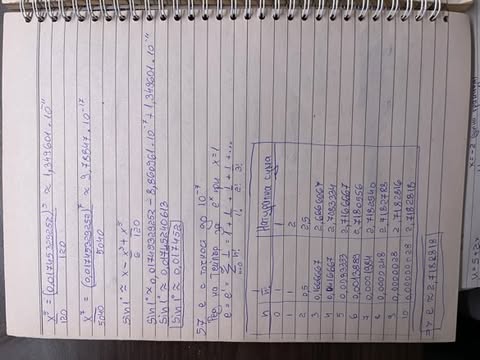 x⁵/120 = (0,01745329252)⁵/120 ≈ 1,349601 · 10⁻¹¹
x⁷/5040 = (0,01745329252)⁷/5040 ≈ 9,78847 · 10⁻¹⁷
sin1° ≈ x − x³/6 + x⁵/120
sin1° ≈ 0,01745329252 − 8,860961 · 10⁻⁷ + 1,349601 · 10⁻¹¹
sin1° ≈ 0,01745240613
sin1° ≈ 0,017452
57 e с точност до 10⁻⁷
Ред на Тейлър за eˣ при x=1
e = e¹ = ∑ 1/n! = 1 + 1/1! + 1/2! + 1/3! + ...
n 1/n! Натурална сума
0 1 1
1 1 2
2 0,5 2,5
3 0,1666667 2,6666667
4 0,0416667 2,7083334
5 0,0083333 2,7166667
6 0,0013889 2,7180556
7 0,0001984 2,7182540
8 0,0000248 2,7182788
9 0,0000028 2,7182816
10 0,00000028 2,7182818
=> e ≈ 2,7182818